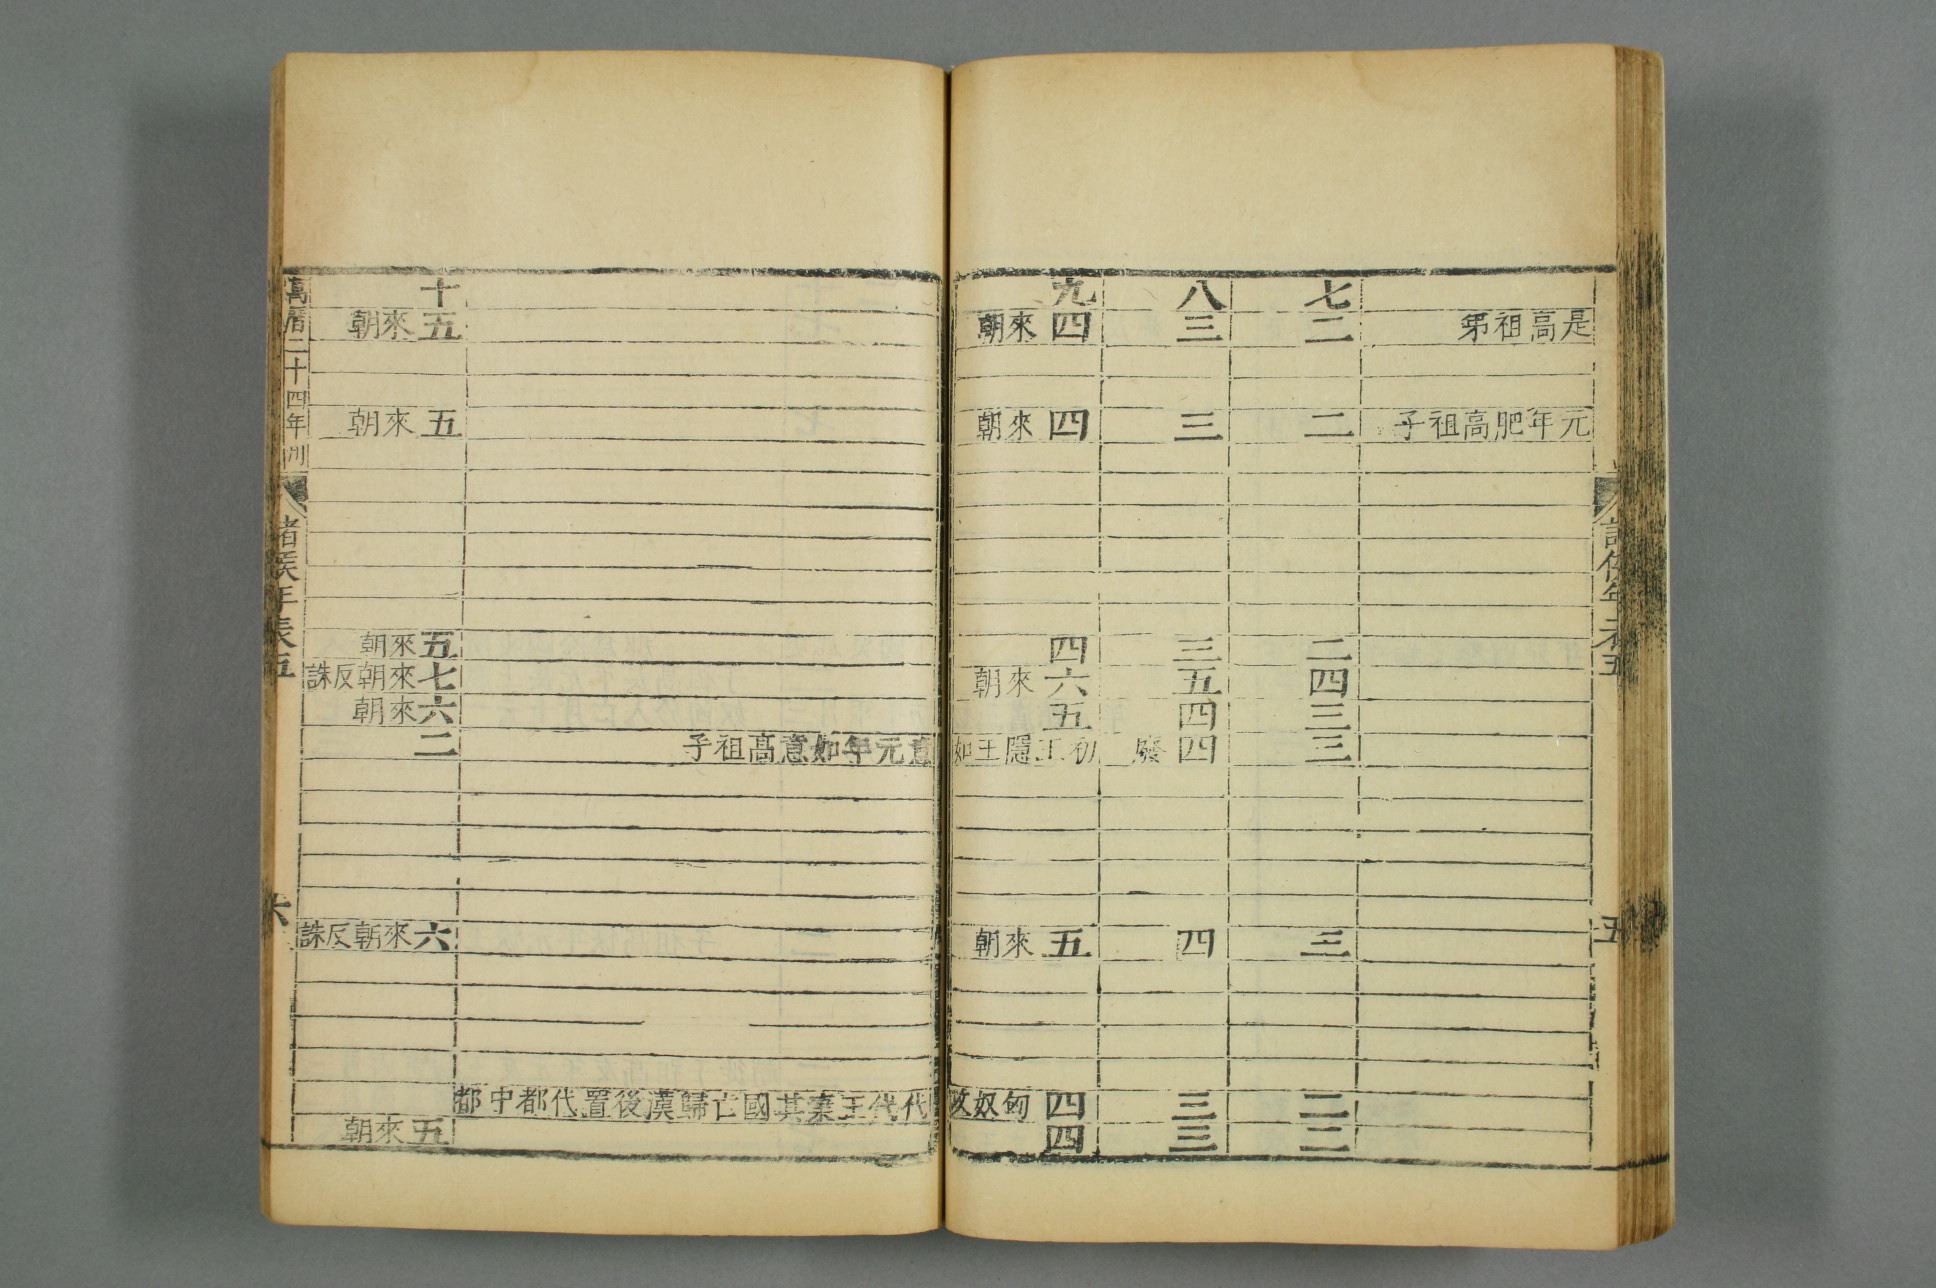 是高祖弟
元年肥高祖子
七
二
二
二
四
三
三
三
二
二
八
三
三
三
五
四
四廢
四
三
三
九
四來朝
四來朝
四
六來朝
五
初王隱王如意元年如意高祖子
五來朝
四匈奴攻代代王棄其國亡歸漢後置代都中都
四
十
五來朝
五來朝
五來朝
七來朝反誅
六來朝
二
六來朝反誅
五來朝
萬曆二十四年刊
諸侯年表五
六
五